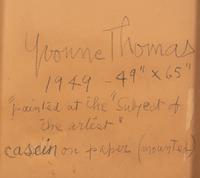 Yvonne Thomas
1949 - 49" x 65"
"painted at the "Subject of
the artist"
casein on paper (mounted)